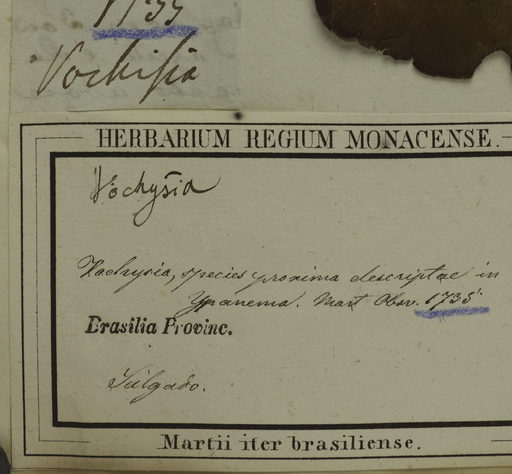 1735
Vochisia
HERBARIUM REGIUM MONACENSE.
Vochysia
Vochysia, species proxima descriptae in
Ypanema. Mart. Obsv. 1735
Brasilia Provinc.
Salgado.
Martii iter brasiliense.